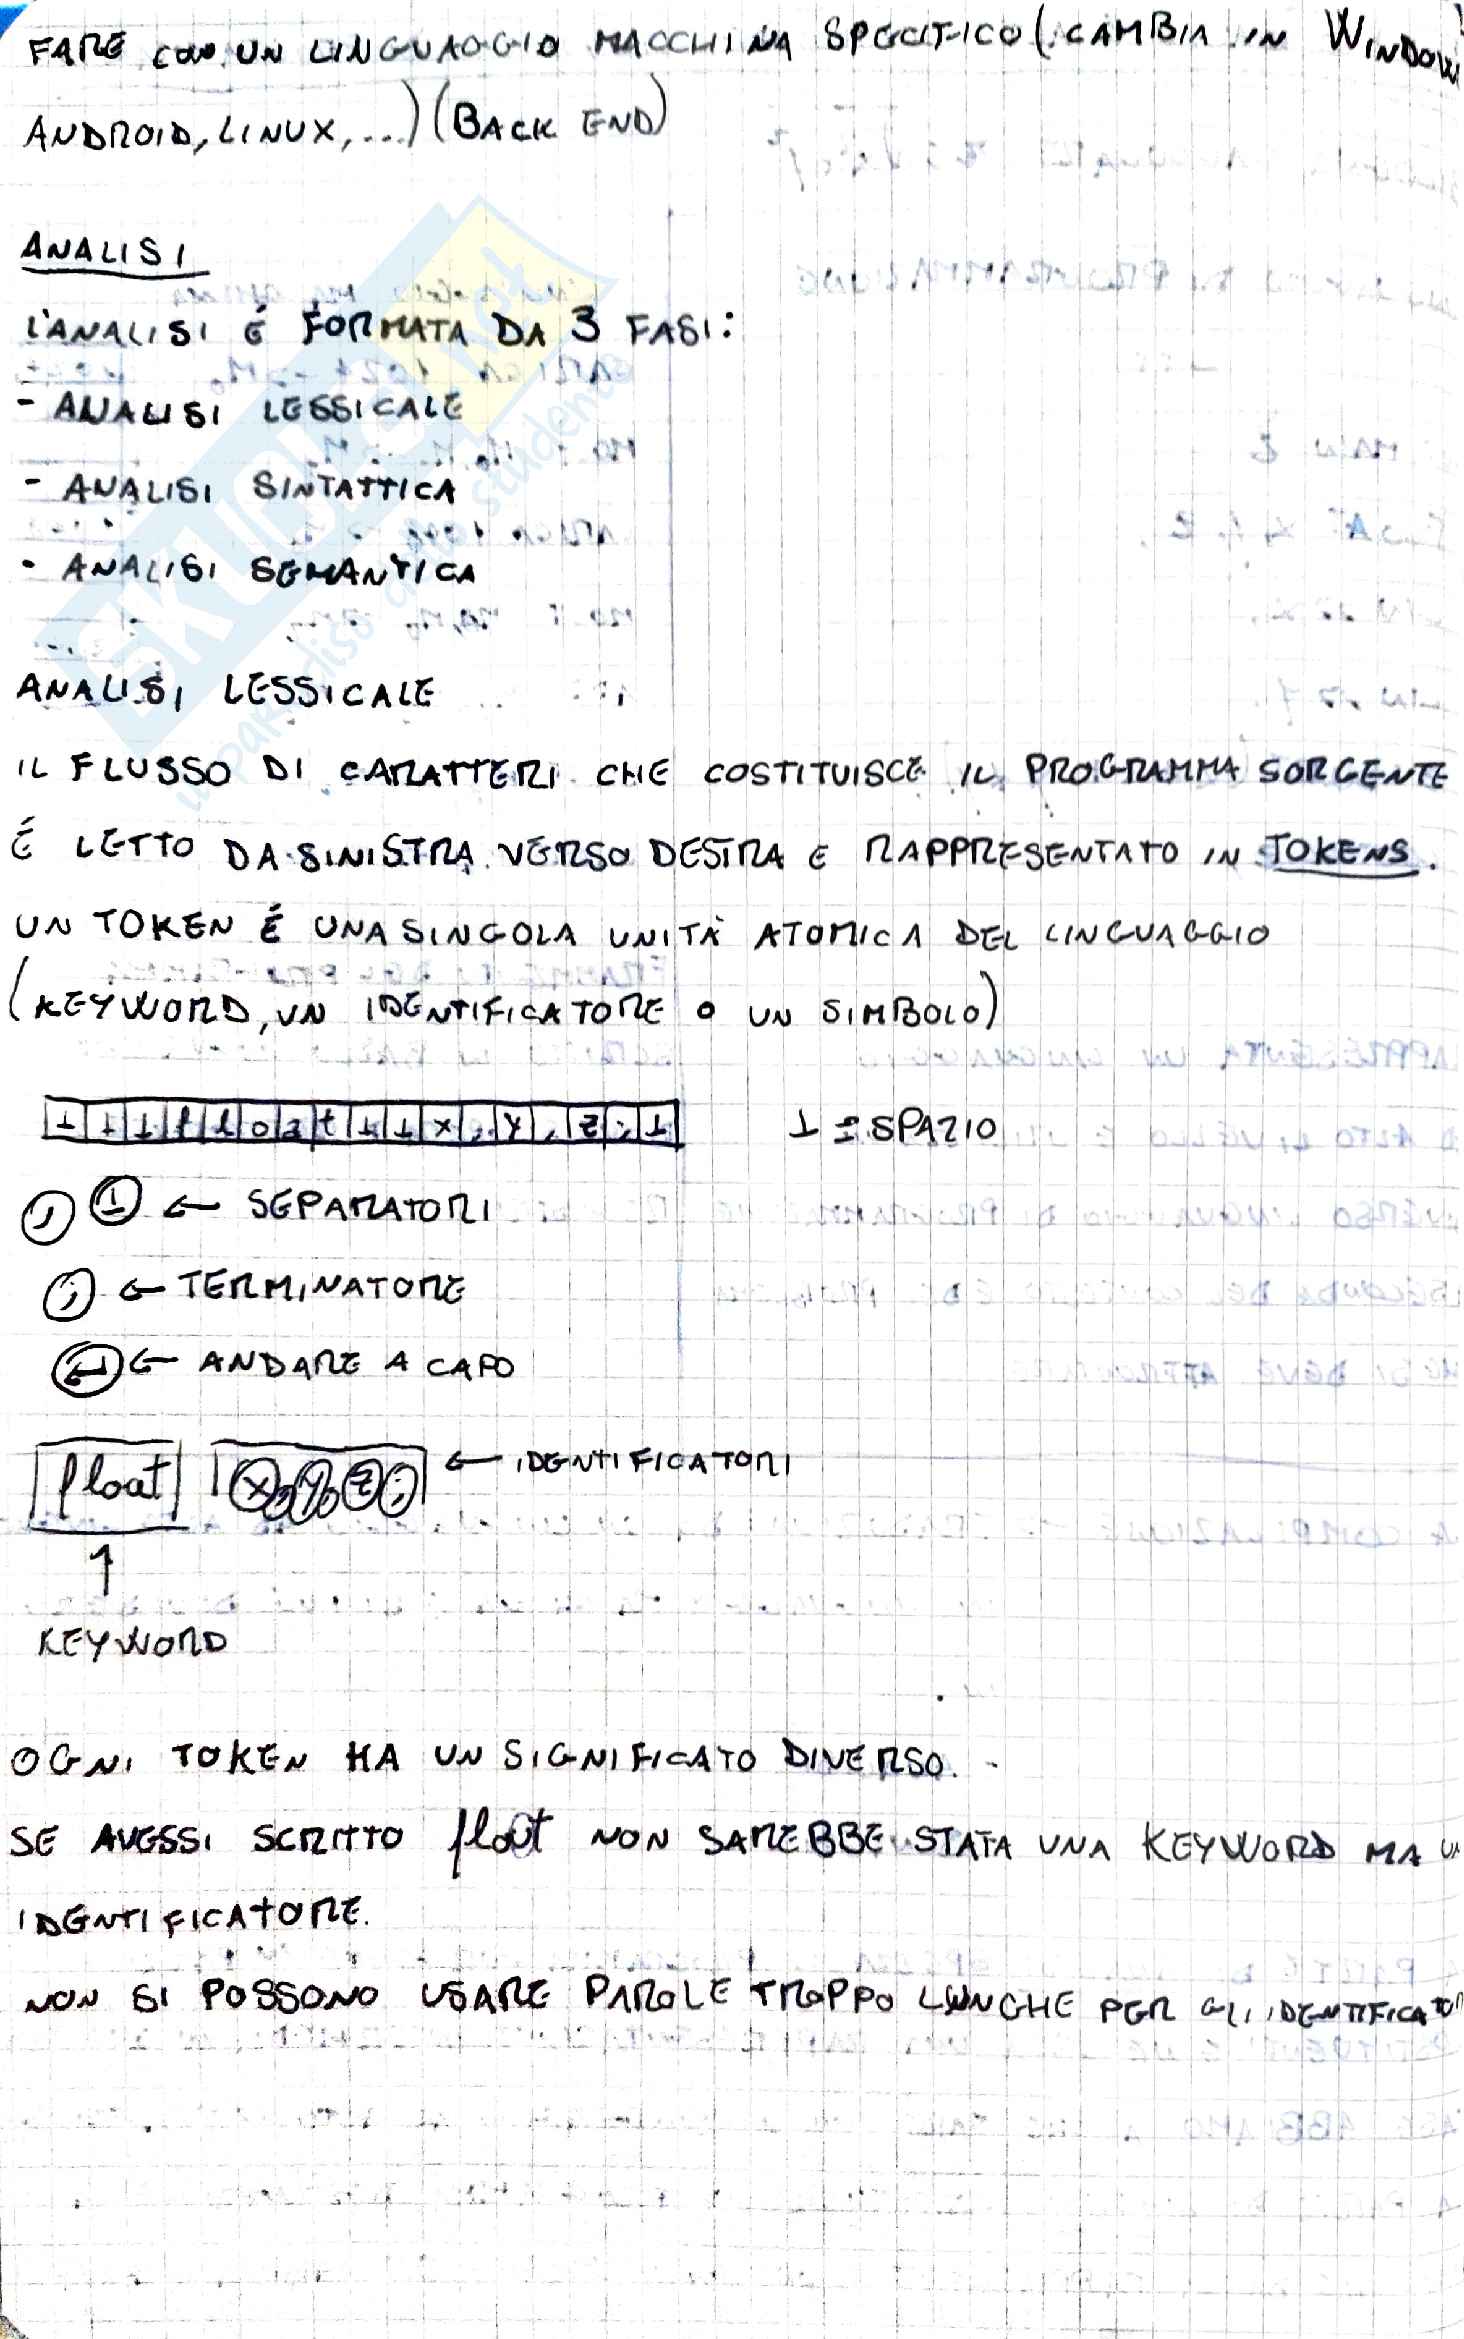 FARE CON UN LINGUAGGIO MACCHINA SPECIFICO (CAMBIA IN WINDOWS
ANDROID, LINUX, ...) (BACK END)
ANALISI
L'ANALISI É FORMATA DA 3 FASI:
- ANALISI LESSICALE
- ANALISI SINTATTICA
- ANALISI SEMANTICA
ANALISI LESSICALE
IL FLUSSO DI CARATTERI CHE COSTITUISCE IL PROGRAMMA SORGENTE
É LETTO DA SINISTRA VERSO DESTRA E RAPPRESENTATO IN TOKENS.
UN TOKEN É UNA SINGOLA UNITÀ ATOMICA DEL LINGUAGGIO
(KEYWORD, UN IDENTIFICATORE O UN SIMBOLO)
⊥ ⊥ ⊥ f l o a t ⊥ ⊥ x , y , z ; ⊥ ⊥ = SPAZIO
, ⊥ ← SEPARATORI
; ← TERMINATORE
↵ ← ANDARE A CAPO
float x, y, z; ← IDENTIFICATORI
↑
KEYWORD
OGNI TOKEN HA UN SIGNIFICATO DIVERSO.
SE AVESSI SCRITTO NON SAREBBE STATA UNA KEYWORD MA UN
IDENTIFICATORE.
NON SI POSSONO USARE PAROLE TROPPO LUNGHE PER GLI IDENTIFICATOR
SKUOLA.net
il paradiso dello studente